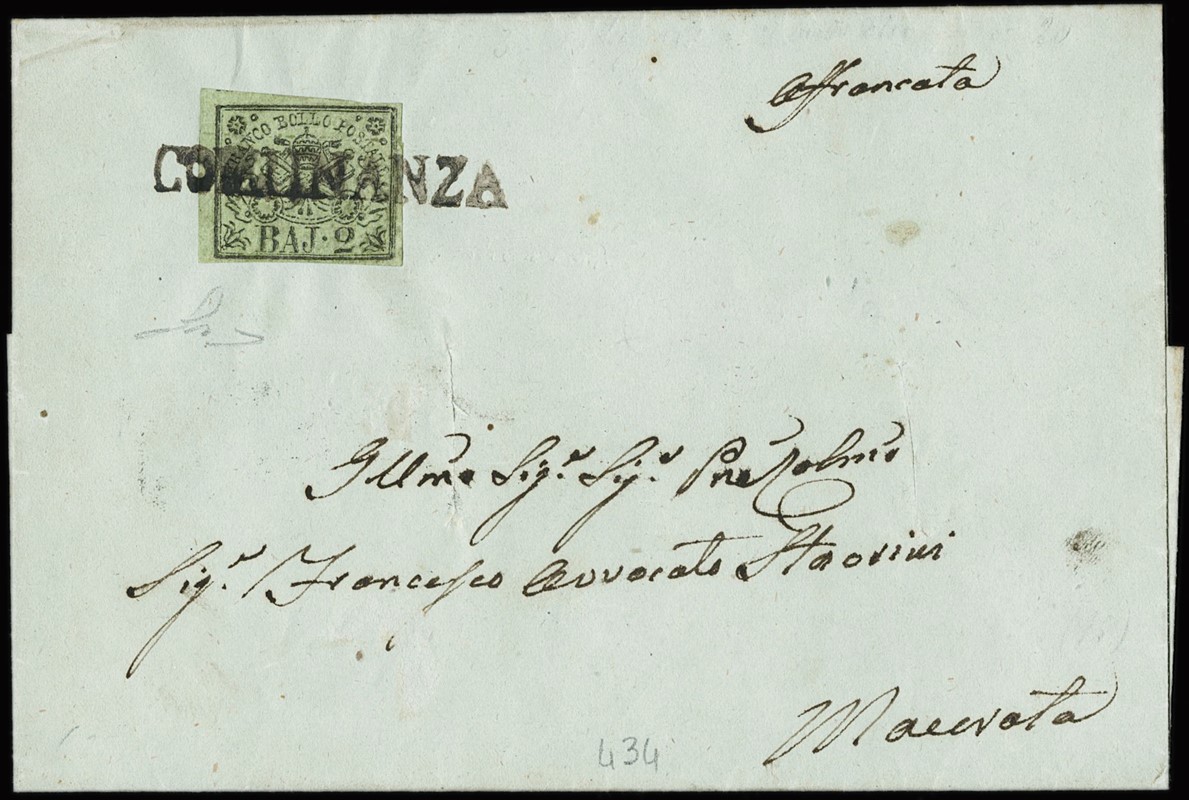 Affrancata
FRANCO BOLLO POSTALE
COMUNANZA
BAJ· 2
Illmo Sigr. Sigr. Pne Colmo
Sigr. Francesco Avvocato
Macerata
434